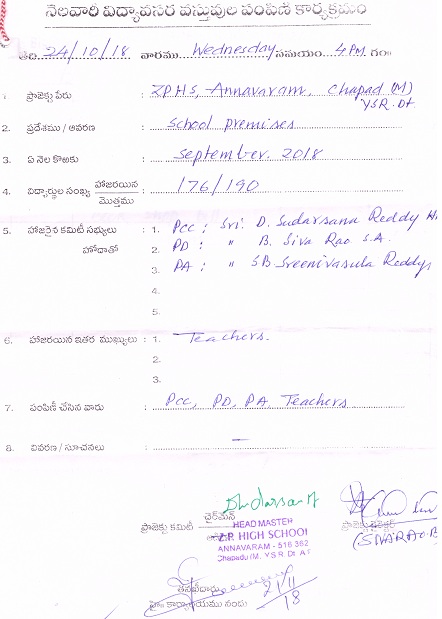 నెలవారి విద్యావసర వస్తువుల పంపిణి కార్యక్రమం
తేది. 24/10/18 వారము Wednesday సమయం. 4 PM. గం
1. ప్రాజెక్టు పేరు : ZPHS, Annavaram, Chapad (M)
YSR. Dt
2. ప్రదేశము / ఆవరణ : School premises
3. ఏ నెల కొఱకు : September. 2018
4. విద్యార్థుల సంఖ్య హాజరయిన : 176/190
మొత్తము
5. హాజరైన కమిటీ సభ్యులు : 1. PCC : Sri. D. Sudarsana Reddy H
హోదాతో 2. PD : " B. Siva Rao S.A.
3. PA : " S.B. Sreenivasula Reddy
4.
5.
6. హాజరయిన ఇతర ముఖ్యులు : 1. Teachers.
2.
3.
7. పంపిణీ చేసిన వారు : PCC, PD, PA, Teachers
8. వివరణ / సూచనలు : —
ప్రాజెక్టు కమిటీ చైర్‌మేన్
ప్రాజెక్టు డైరెక్టర్
HEAD MASTER
Z.P. HIGH SCHOOL
ANNAVARAM - 516 362
Chapadu (M. Y.S.R. Dt. A.P
(SIVARAO.B
తనిఖీదారు
కార్యాలయము నందు 21/11
18